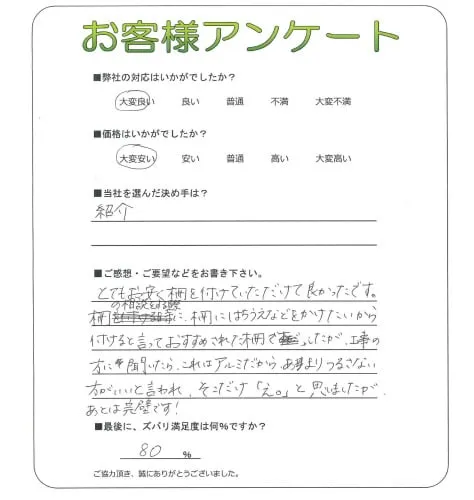 お客様アンケート
■弊社の対応はいかがでしたか？
大変良い 良い 普通 不満 大変不満
■価格はいかがでしたか？
大変安い 安い 普通 高い 大変高い
■当社を選んだ決め手は？
紹介
■ご感想・ご要望などをお書き下さい。
とてもお安く柵を付けていただけて良かったです。
の相談をする際
柵に、柵にはちうえなどをかけたいから
付けると言っておすすめされた柵でしたが、工事の
方に聞いたら、これはアルミだから、あまりつるさない
方がいいと言われ、そこだけ「え。」と思いましたが、
あとは完璧です!
■最後に、ズバリ満足度は何%ですか？
80 %
ご協力頂き、誠にありがとうございました。